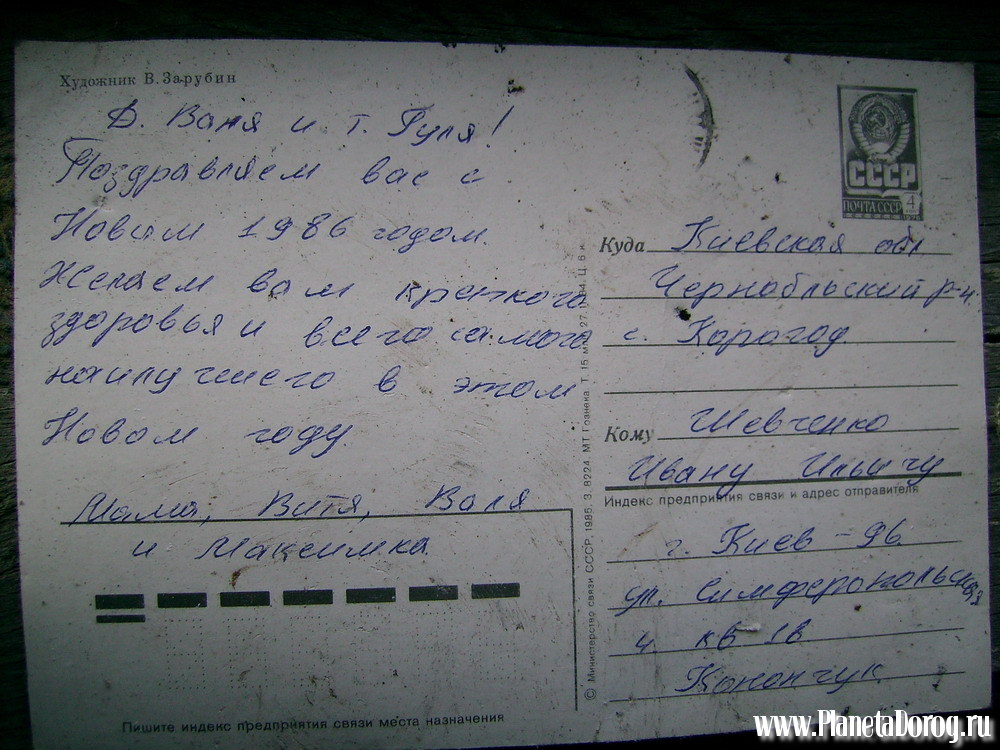 Художник В. Зарубин
Д. Ваня и т. Гуля!
Поздравляем вас с
Новым 1986 годом.
Желаем вам крепкого
здоровья и всего самого
наилучшего в этом
Новом году
Мама, Витя, Валя
и Максимка
Пишите индекс предприятия связи места назначения
© Министерство связи СССР, 1985. З. 8224. МТ Гознака. Т. 15
СССР
ПОЧТА СССР
4
Куда Киевская обл
Чернобльский р-н.
с. Корогод
Кому Шевченко
Ивану Ильичу
Индекс предприятия связи и адрес отправителя
г. Киев - 96
ул. Симферопольская
кв 18
Конончук
www.PlanetaDorog.ru